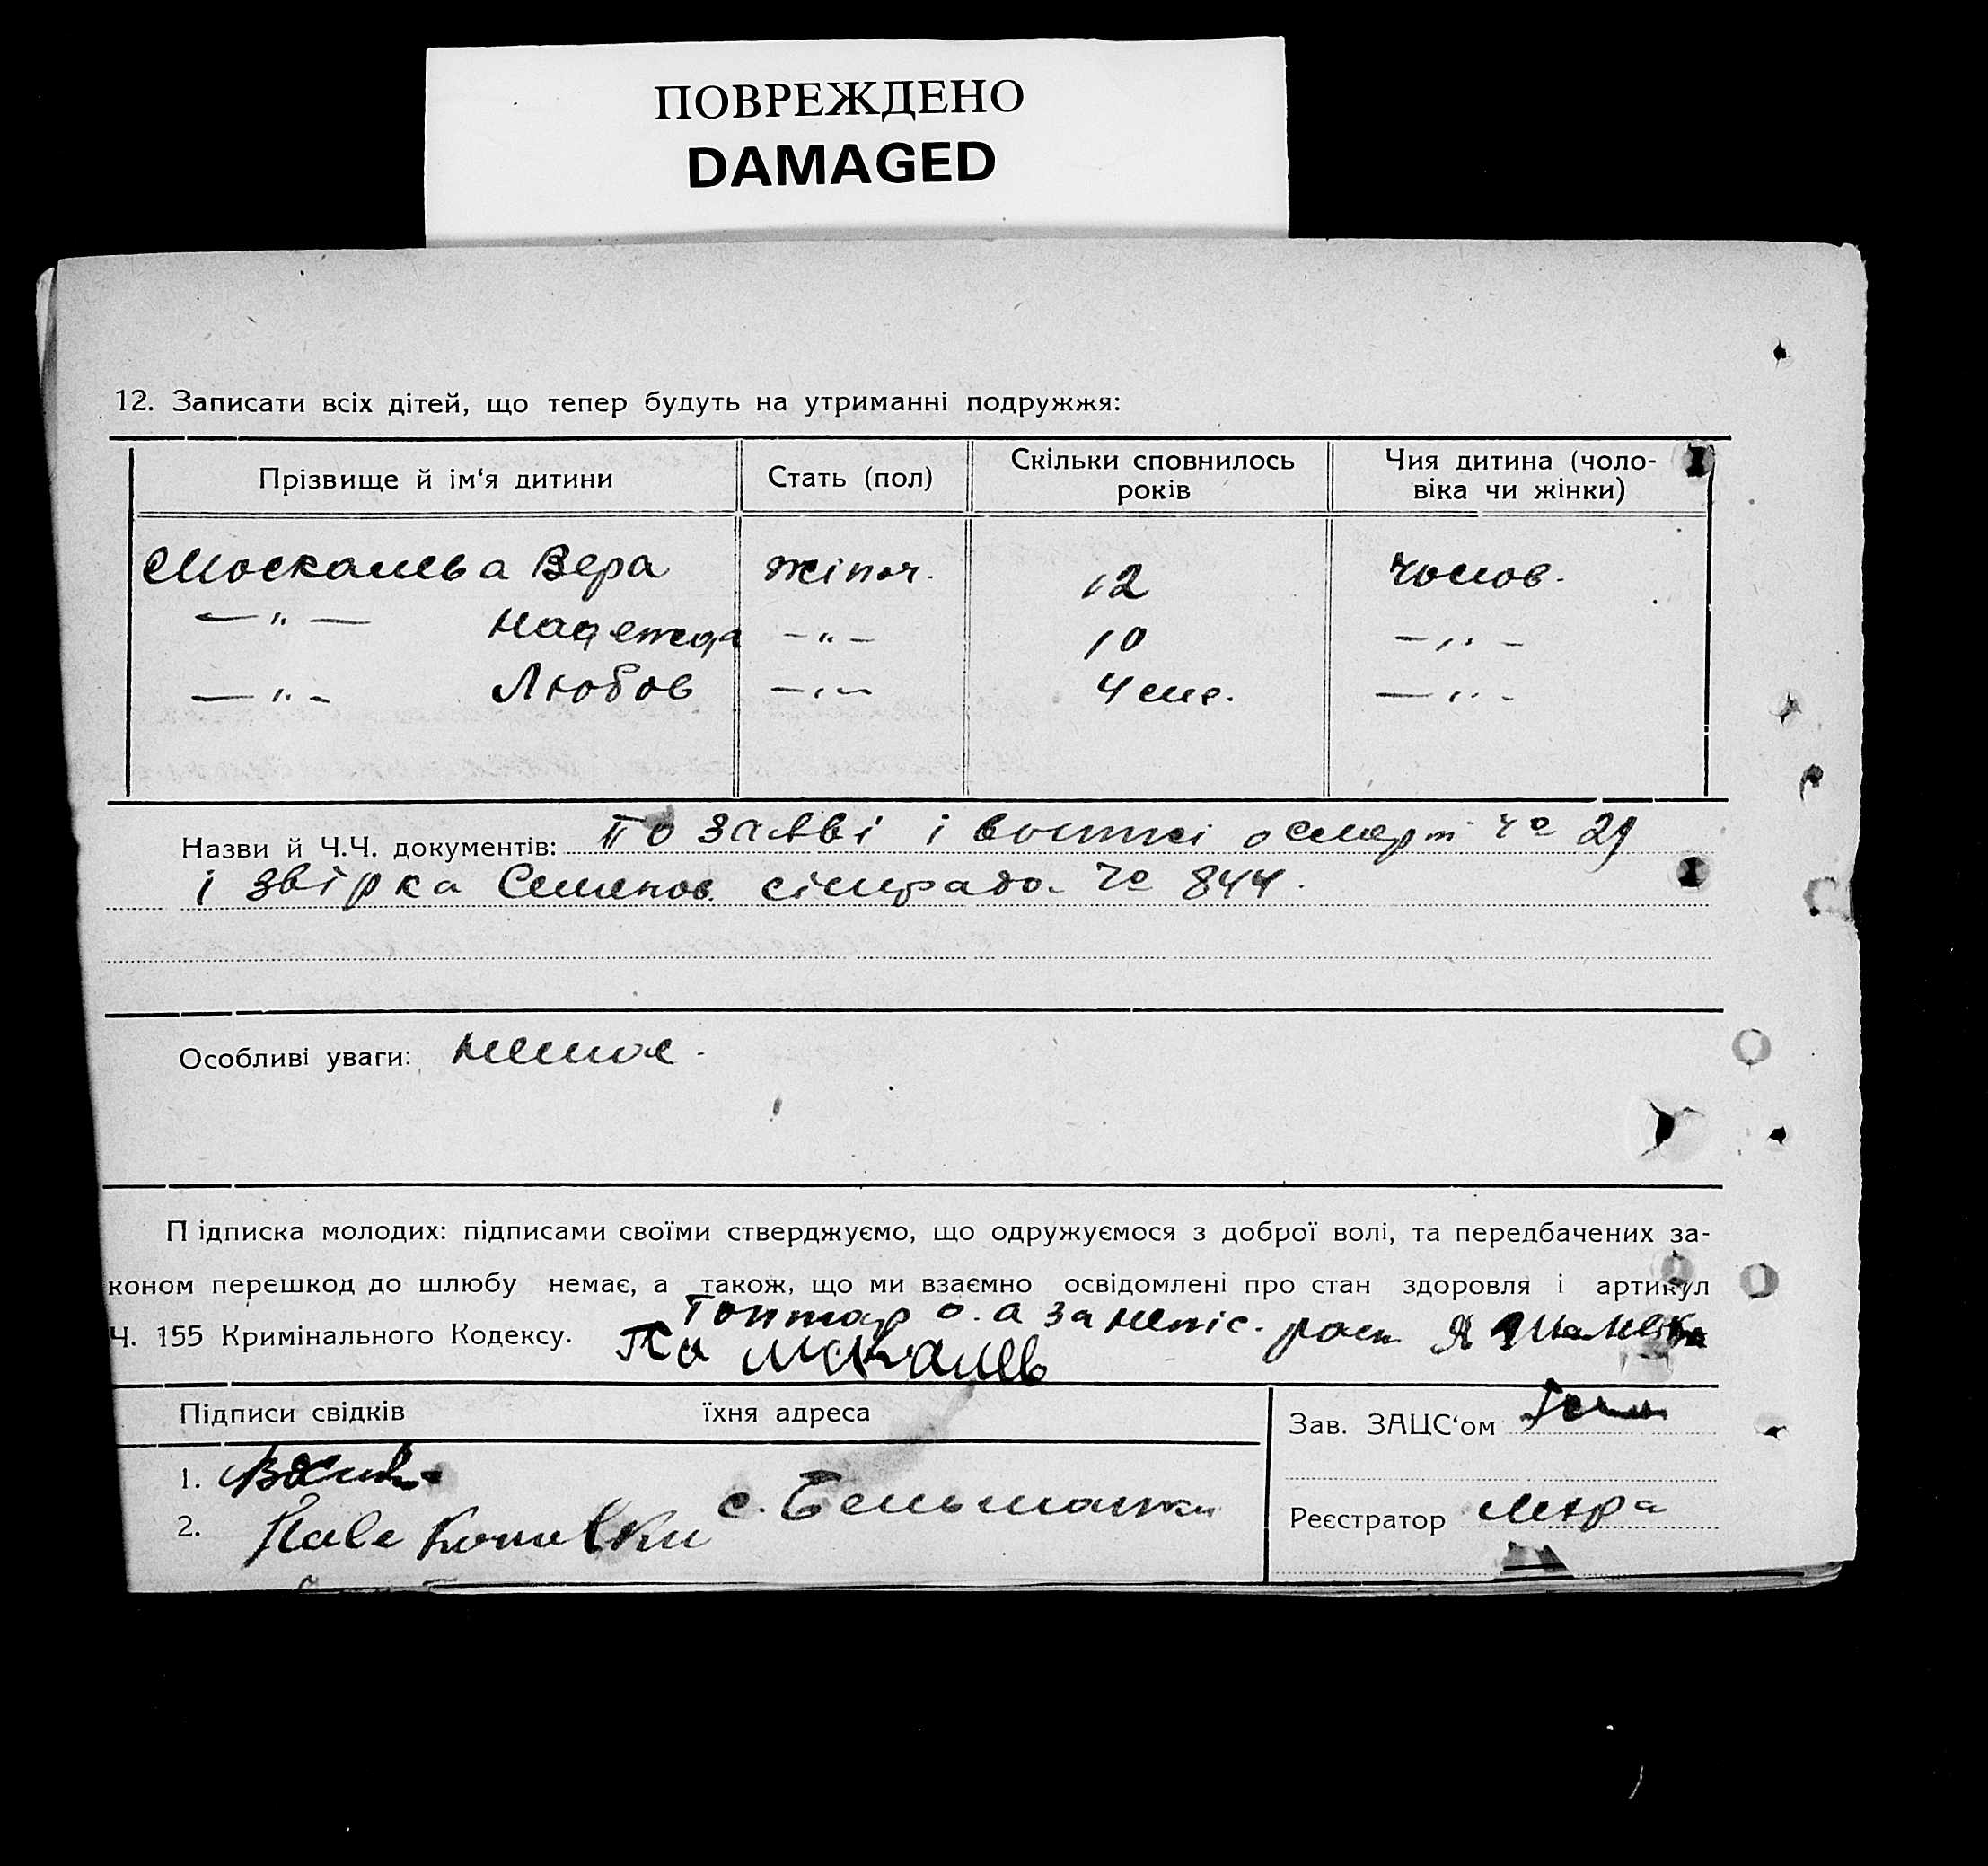 ПОВРЕЖДЕНО
DAMAGED
12. Записати всіх дітей, що тепер будуть на утриманні подружжя:
Прізвище й ім‘я дитини
Стать (пол)
Скільки сповнилось років
Чия дитина (чоло-
віка чи жінки)
Москальва Вера жіноч. 12 чолов.
— „ — Надежда — „ — 10 — „ —
— „ — Любов — „ — 4 — „ —
Назви й Ч.Ч. документів: По заяві і о смерт. Ч° 29
і звірка сільради Ч° 844.
Особливі уваги: немає.
Підписка молодих: підписами своїми стверджуємо, що одружуємося з доброї волі, та передбачених за-
коном перешкод до шлюбу немає, а також, що ми взаємно освідомлені про стан здоровля і артикул
Ч. 155 Кримінального Кодексу.
Гонтар о. а за непіс. рост.
Підписи свідків їхня адреса
Зав. ЗАЦС‘ом
1.
2. с. Бельманки
Реєстратор